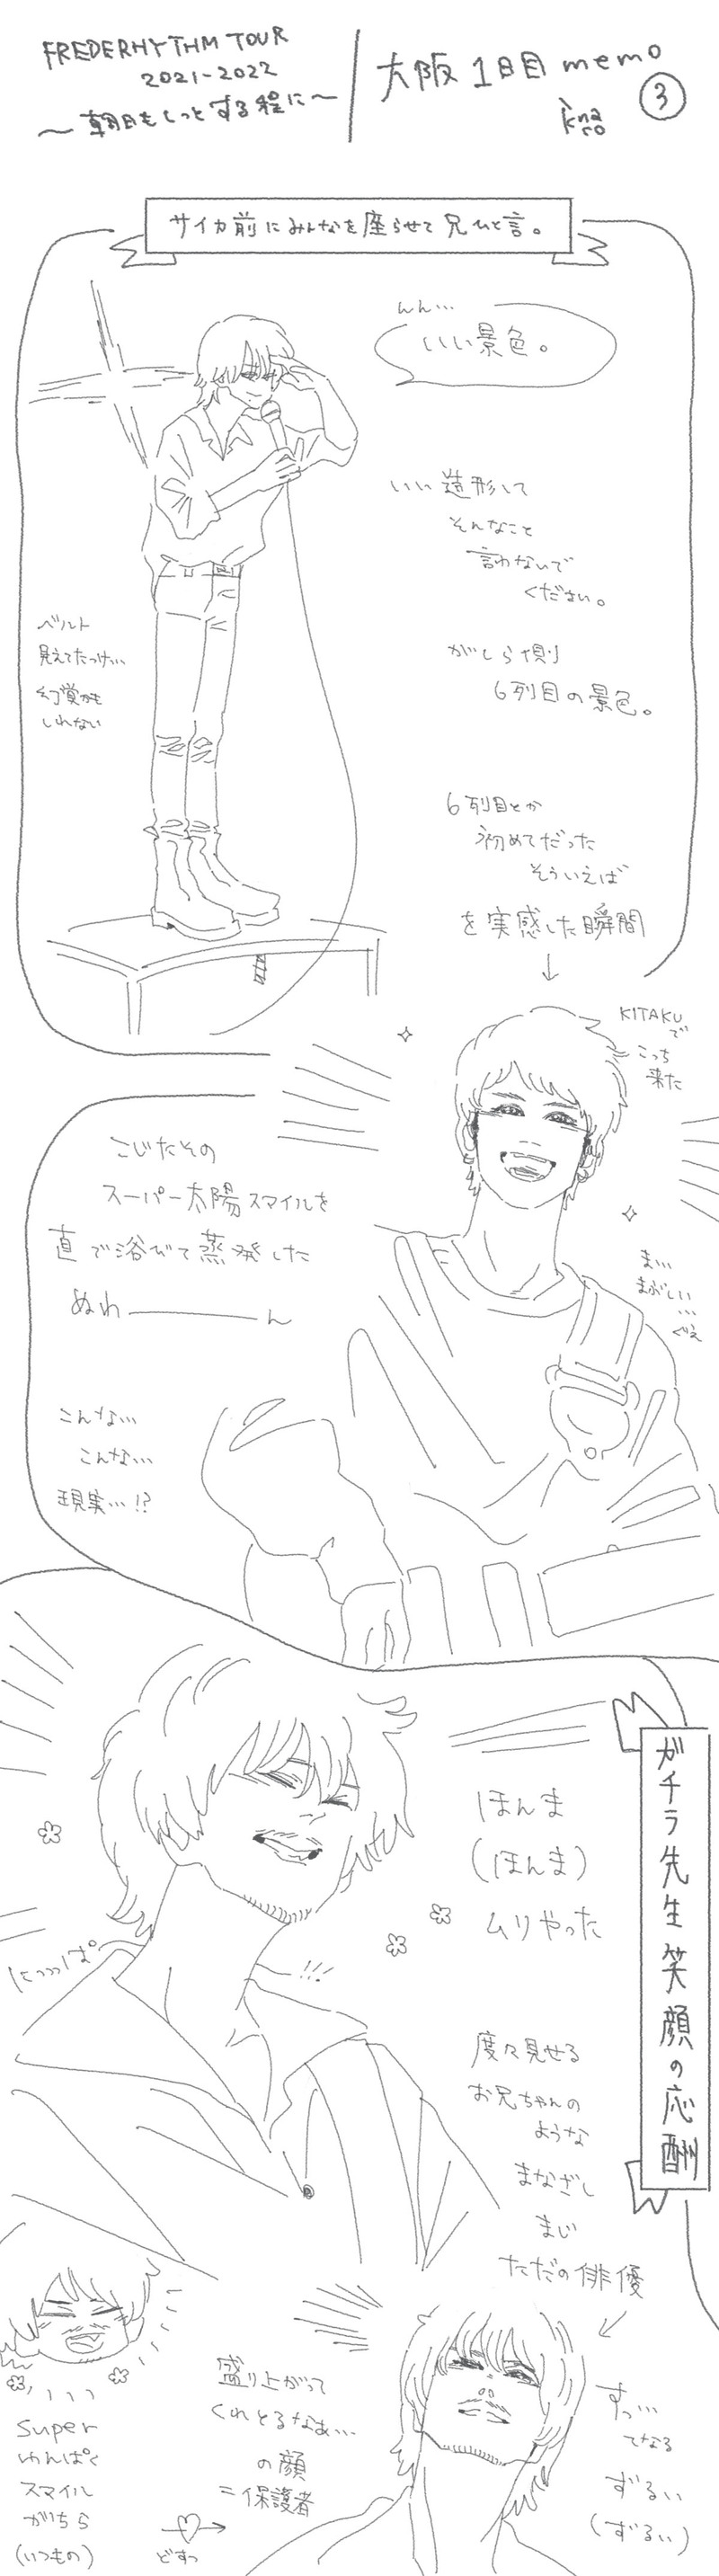 FREDERHYTHM TOUR
2021-2022
〜朝日もしっとする程に〜
大阪1日目memo
③
knaco
サイカ前にみんなを座らせて兄ひと言。
んん…
いい景色。
いい造形して
そんなこと
言わないで
ください。
ベルト
見えてたっけ…
幻覚かも
しれない
がしら側
6列目の景色。
6列目とか
初めてだった
そういえば
を実感した瞬間
↓
KITAKU
で
こっち
来た
こじたその
スーパー太陽スマイルを
直で浴びて蒸発した
ぬわ――――ん
ま…
まぶしい
…
ぐえ
こんな…
こんな…
現実…!?
ガチラ先生笑顔の応酬
ほんま
(ほんま)
ムリやった
にっっっぱ
!!!
度々見せる
お兄ちゃんの
ような
まなざし
まじ
ただの俳優
盛り上がって
くれとるなぁ…
の顔
=保護者
すっ…
てなる
ずるい
(ずるい)
super
わんぱく
スマイル
がちら
(いつもの)
どすっ